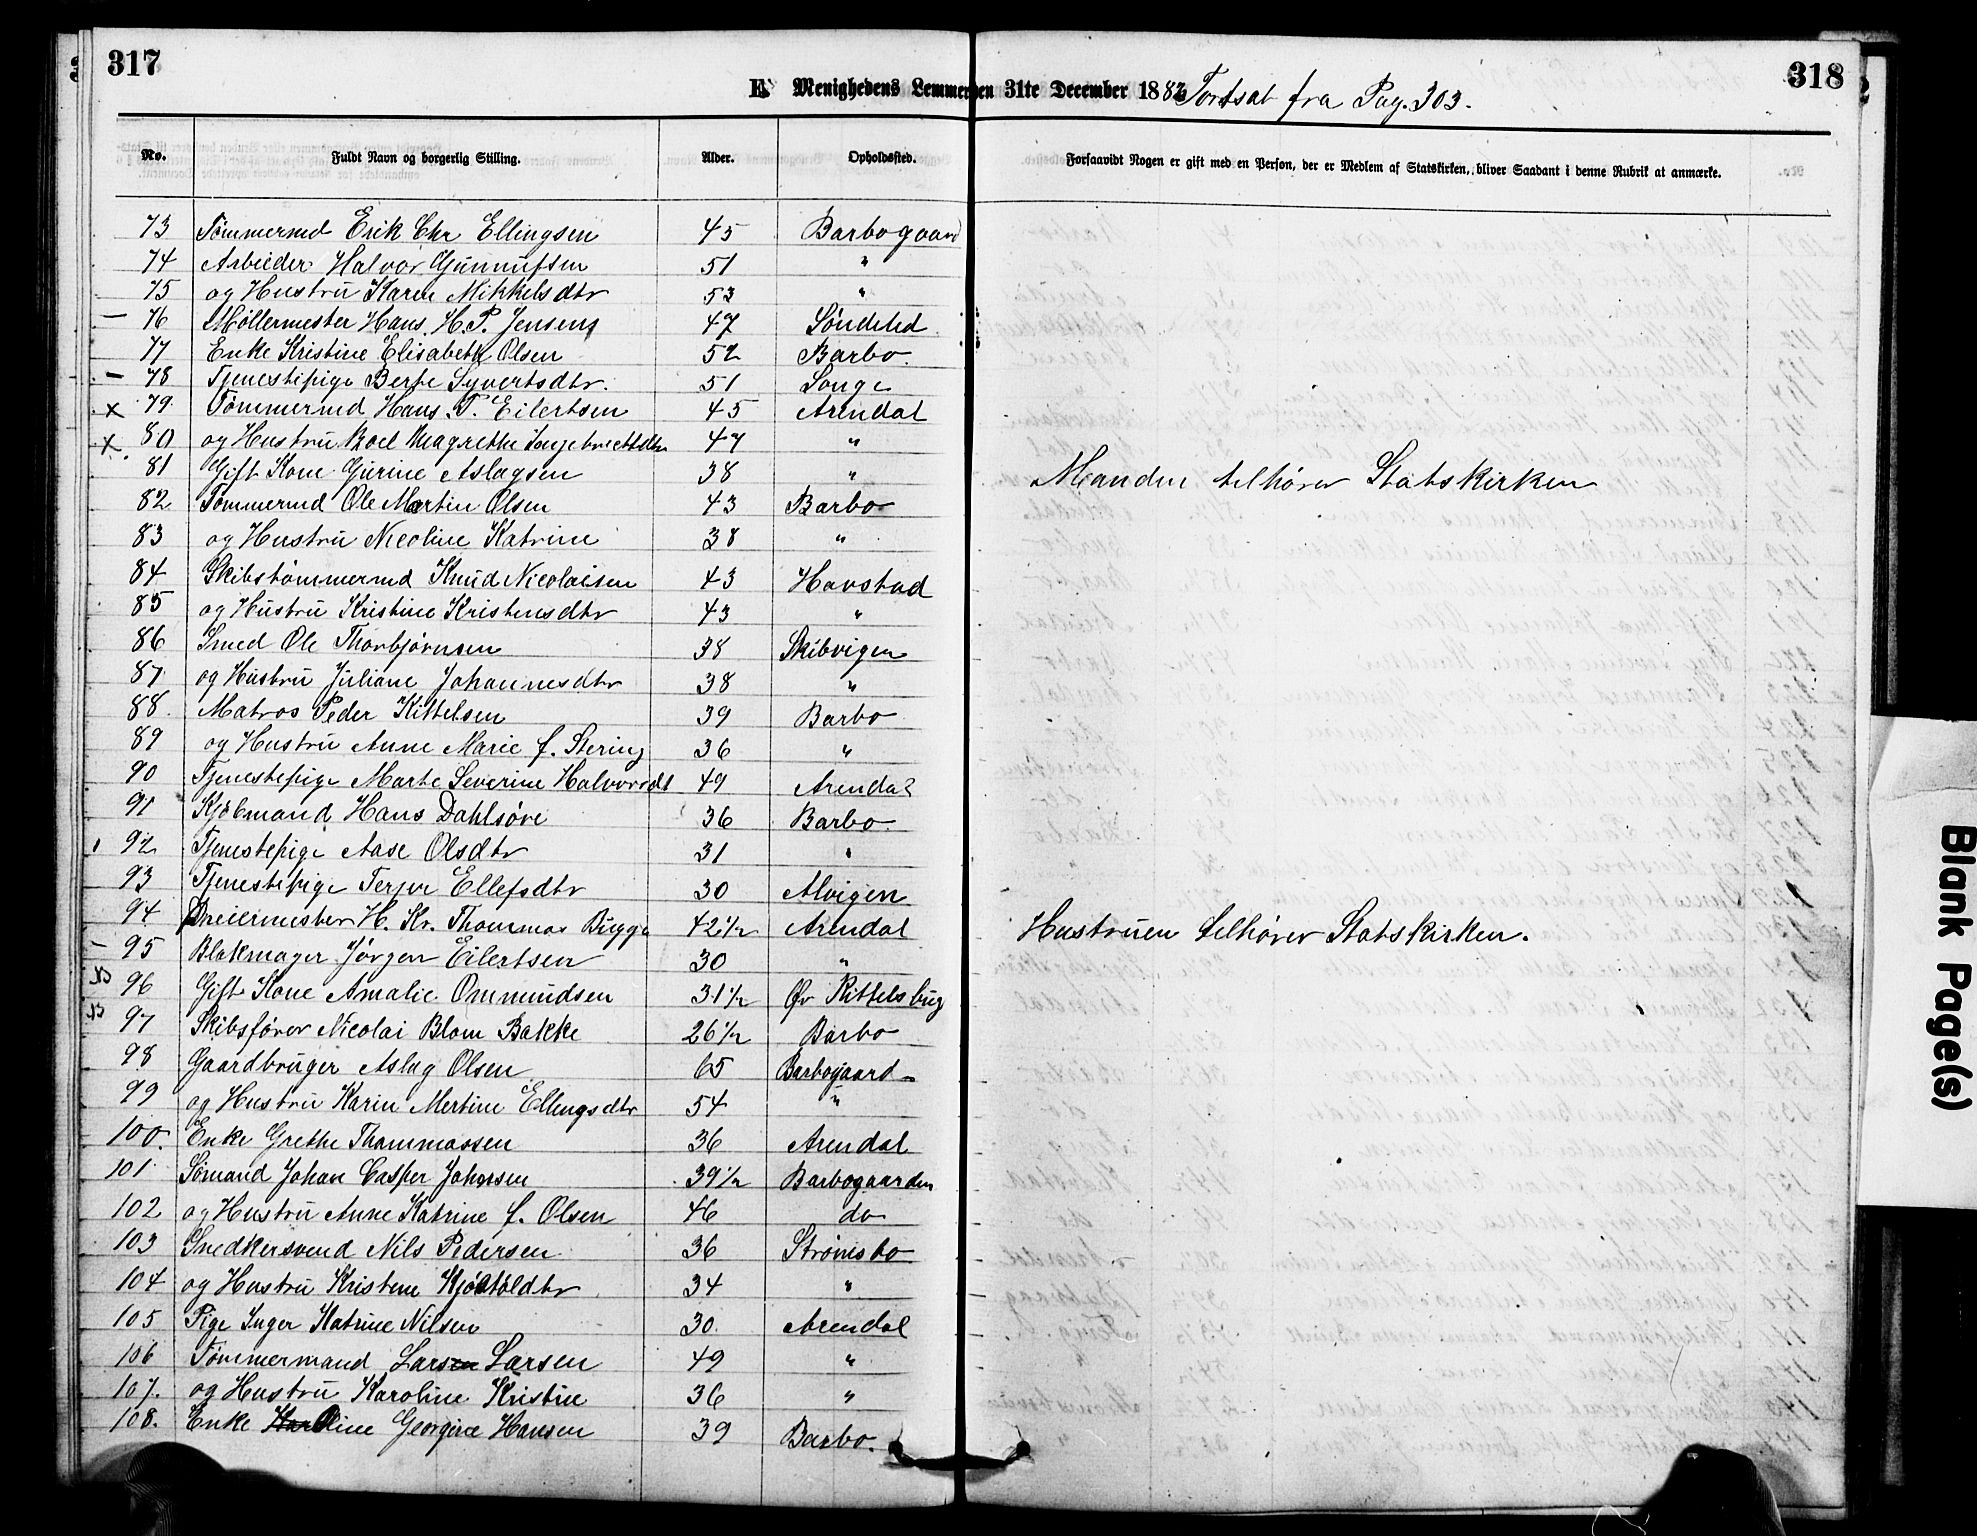 317
318
E. Menighedens Lemmer den 31te December 1882 Fortsat fra Pag. 303.
No. Fuldt Navn og borgerlig Stilling. Alder. Opholdssted. Forsaavidt Nogen er gift med en Person, der er Medlem af Statskirken, bliver Saadant i denne Rubrik at anmærke.
73 Tømmermd Erik Chr Ellingsen 45 Barbogaard
74 Arbeider Halvor Gunnufsen 51 "
75 og Hustru Karen Mikkelsdtr 53 "
— 76 Møllermester Hans. H. P. Jensen 47 Søndeled
77 Enke Kristine Elisabeth Olsen 52 Barbo.
— 78 Tjenestepige Berte Syvertsdtr. 51 Songe
x 79 Tømmermd Hans. T. Eilertsen 45 Arendal
x 80 og Hustru Boel Magrethe Ingebrectsdtr 47 "
81 Gift Kone Gurine Aslagsen 38 " Manden tilhører Statskirken
82 Tømmermd Ole Martin Olsen 43 Barbo
83 og Hustru Nicoline Katrine 38 "
84 Skibstømmermd Knud Nicolaisen 43 Havstad
85 og Hustru Kristine Kristensdtr 43 "
86 Smed Ole Thorbjørnsen 38 Skibvigen
87 og Hustru Juliane Johannesdtr 38 "
88 Matros Peder Kittelsen 39 Barbo
89 og Hustru Anne Marie f. Stering 36 "
90 Tjenestepige Marte Severine Halvorsdt 49 Arendal
91 Kjøbmand Hans Dahlsøve 36 Barbo.
92 Tjenestepige Aase Olsdtr 31 "
93 Tjenestepige Terjer Ellefsdtr 30 Alvigen
94 Dreiermester H. Kr. Thommas Bugge 42 1/2 Arendal Hustruen tilhører Statskirken.
— 95 Blokmager Jørgen Eilertsen 30 "
96 Gift Kone Amalie Ommundsen 31 1/2 Øv Kittelsbug
97 Skibsfører Nicolai Blom Bakke 26 1/2 Barbo
98 Gaardbruger Aslag Olsen 65 Barbogaard
99 og Hustru Karin Mertine Ellingsdtr 54 "
100. Enke Grethe Thommassen 36 Arendal
101 Sømand Johan Casper Johnsen 39 1/2 Barbogaarden
102 og Hustru Anne Katrine f. Olsen 46 do
103 Snedkersvend Nils Pedersen 36 Strømsbo
104 og Hustru Kristene Kjøstøldtr 34 "
105 Pige Inger Katrine Nilsen 30 Arendal
106 Tømmermand Larsen Larsen 49 "
107. og Hustru Karoline Kristine 36 "
108. Enke Oline Georgine Hansen 39 Barbo.
Blank Page(s)